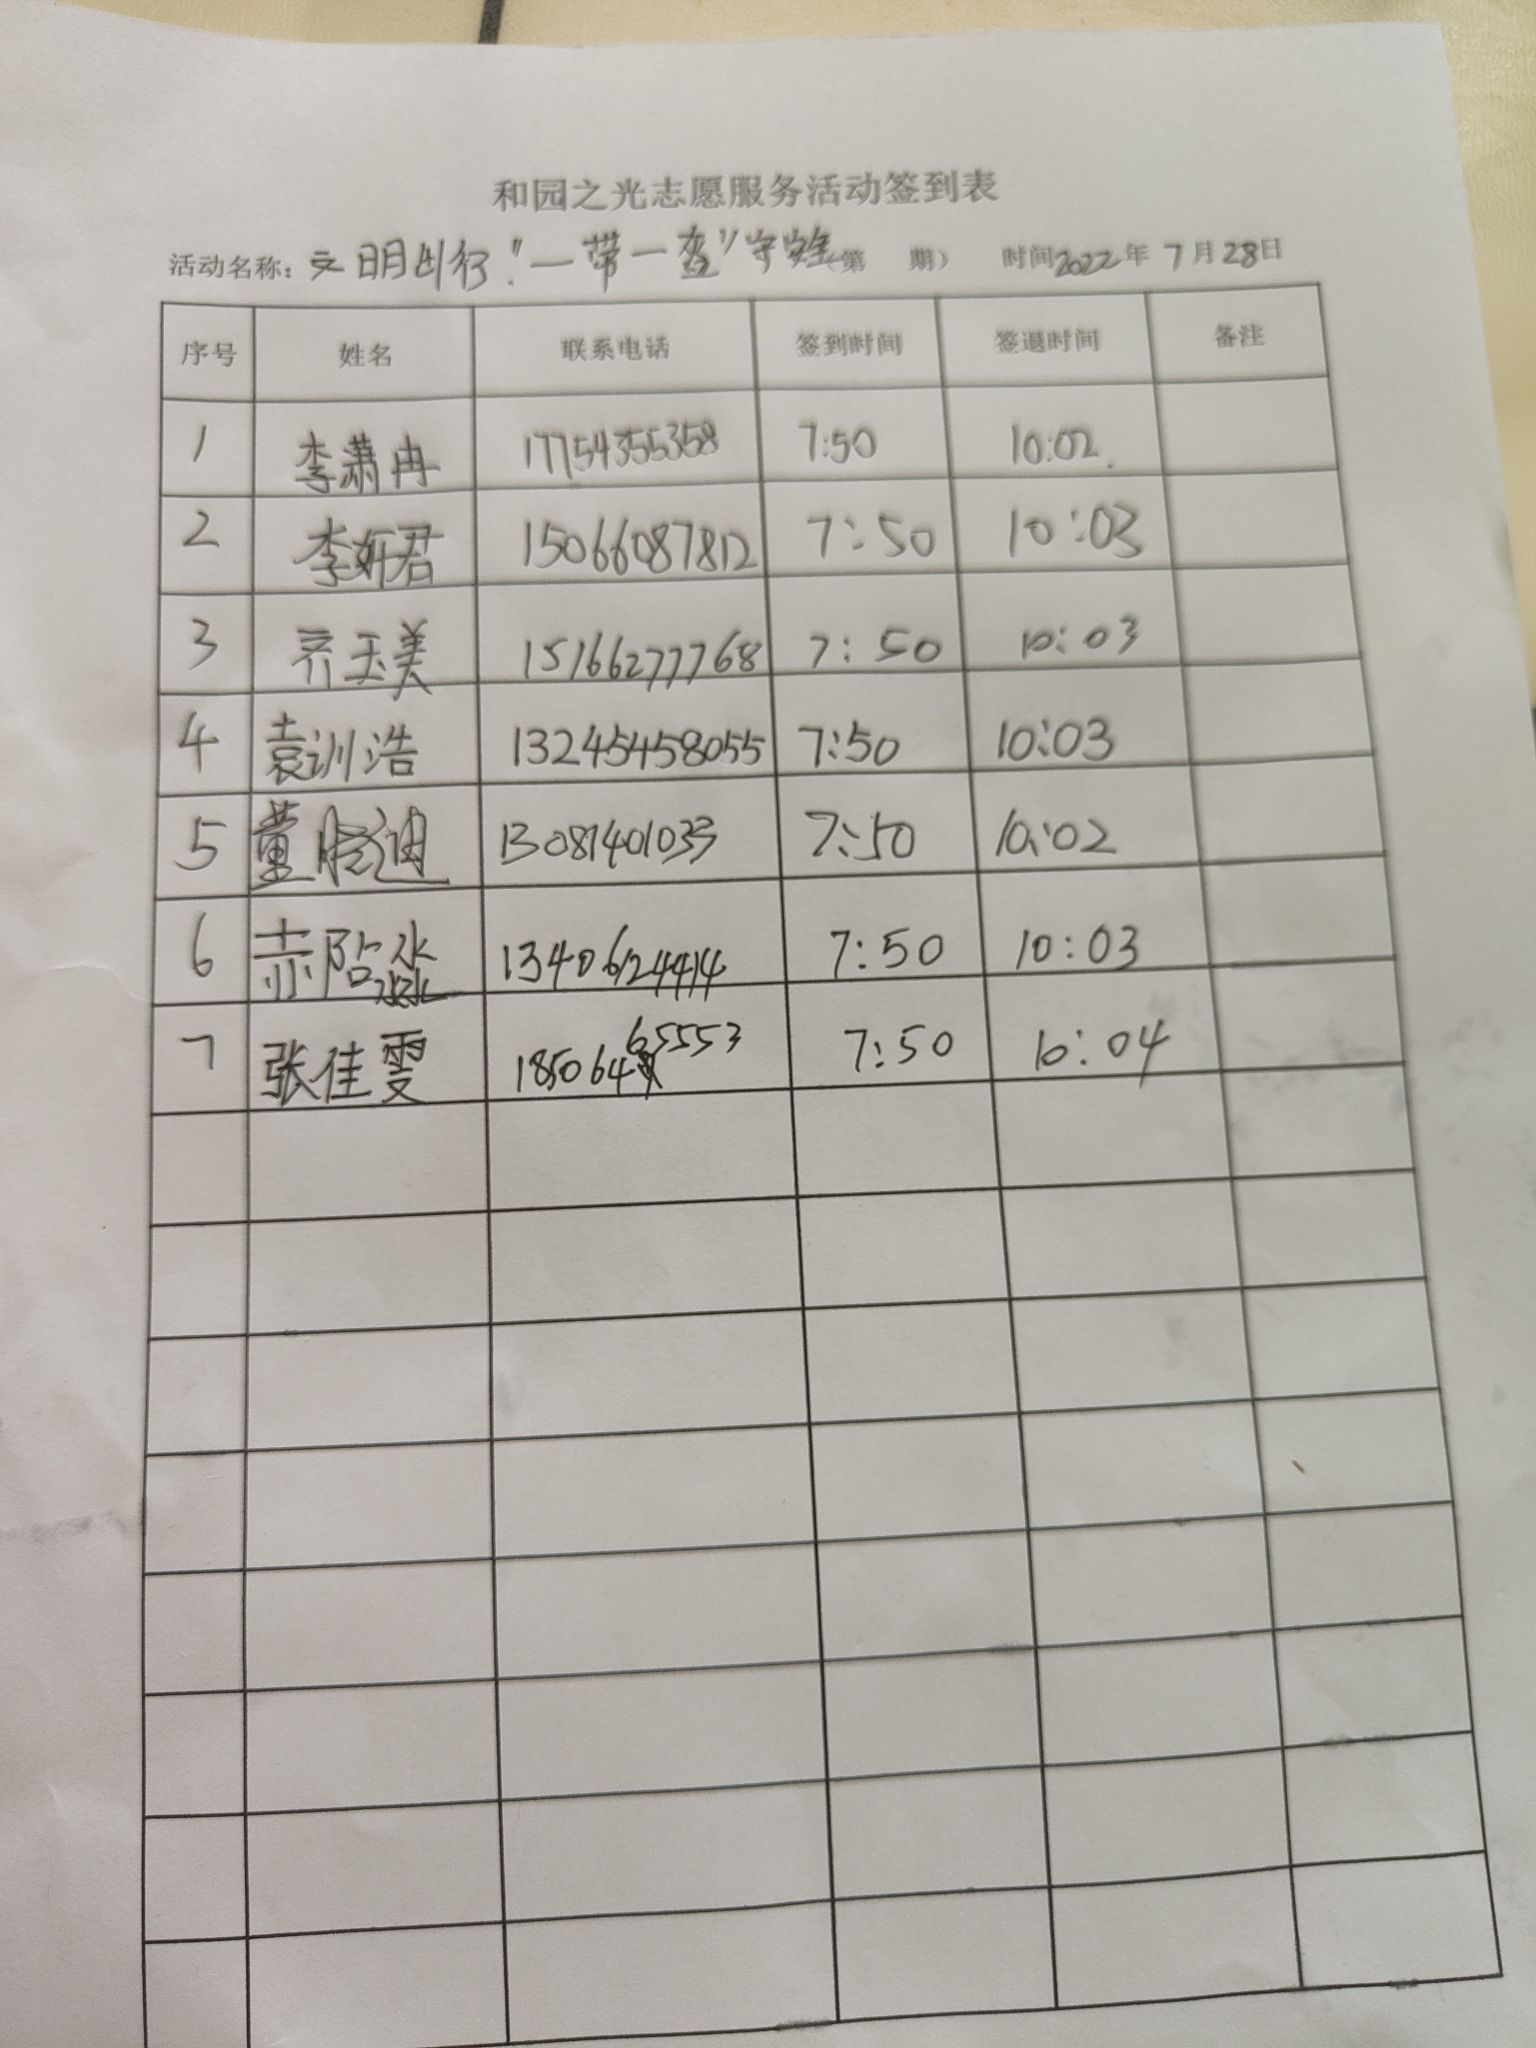 和园之光志愿服务活动签到表
活动名称：文明出行"一带一盔"守安全（第 期） 时间2022年7月28日
序号 姓名 联系电话 签到时间 签退时间 备注
1 李萧冉 17754355358 7:50 10:02
2 李妍君 15066087812 7:50 10:03
3 齐玉美 15166277768 7:50 10:03
4 袁训浩 13245458055 7:50 10:03
5 董晓迪 13087401033 7:50 10:02
6 13406124414 7:50 10:03
7 张佳雯 18506465553 7:50 10:04